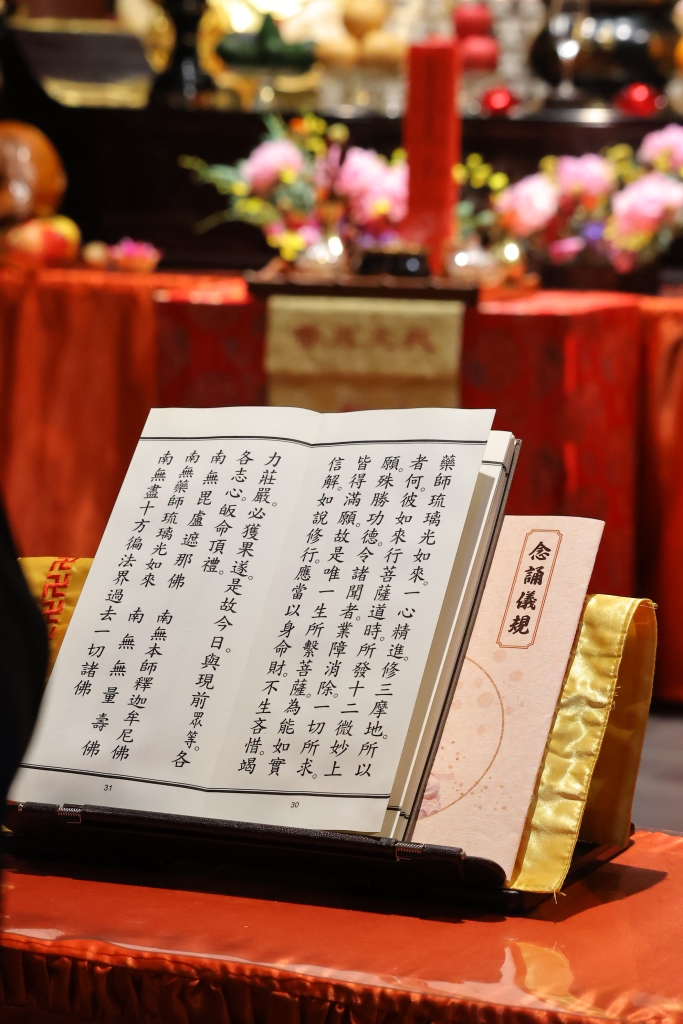 藥師琉璃光如來。一心精進。修三摩地。所以
者何。彼如來行菩薩道時。所發十二微妙上
願。殊勝功德。令諸聞者。業障消除。一切所求。
皆得滿願。故是唯一生所繫菩薩。為能如實
信解。如說修行。應當以身命財。不生吝惜。竭
30
力莊嚴。必獲果遂。是故今日。與現前眾等。各
各志心。皈命頂禮。
南無毘盧遮那佛　南無本師釋迦牟尼佛
南無藥師琉璃光如來　南無無量壽佛
南無盡十方徧法界過去一切諸佛
31
念誦儀規